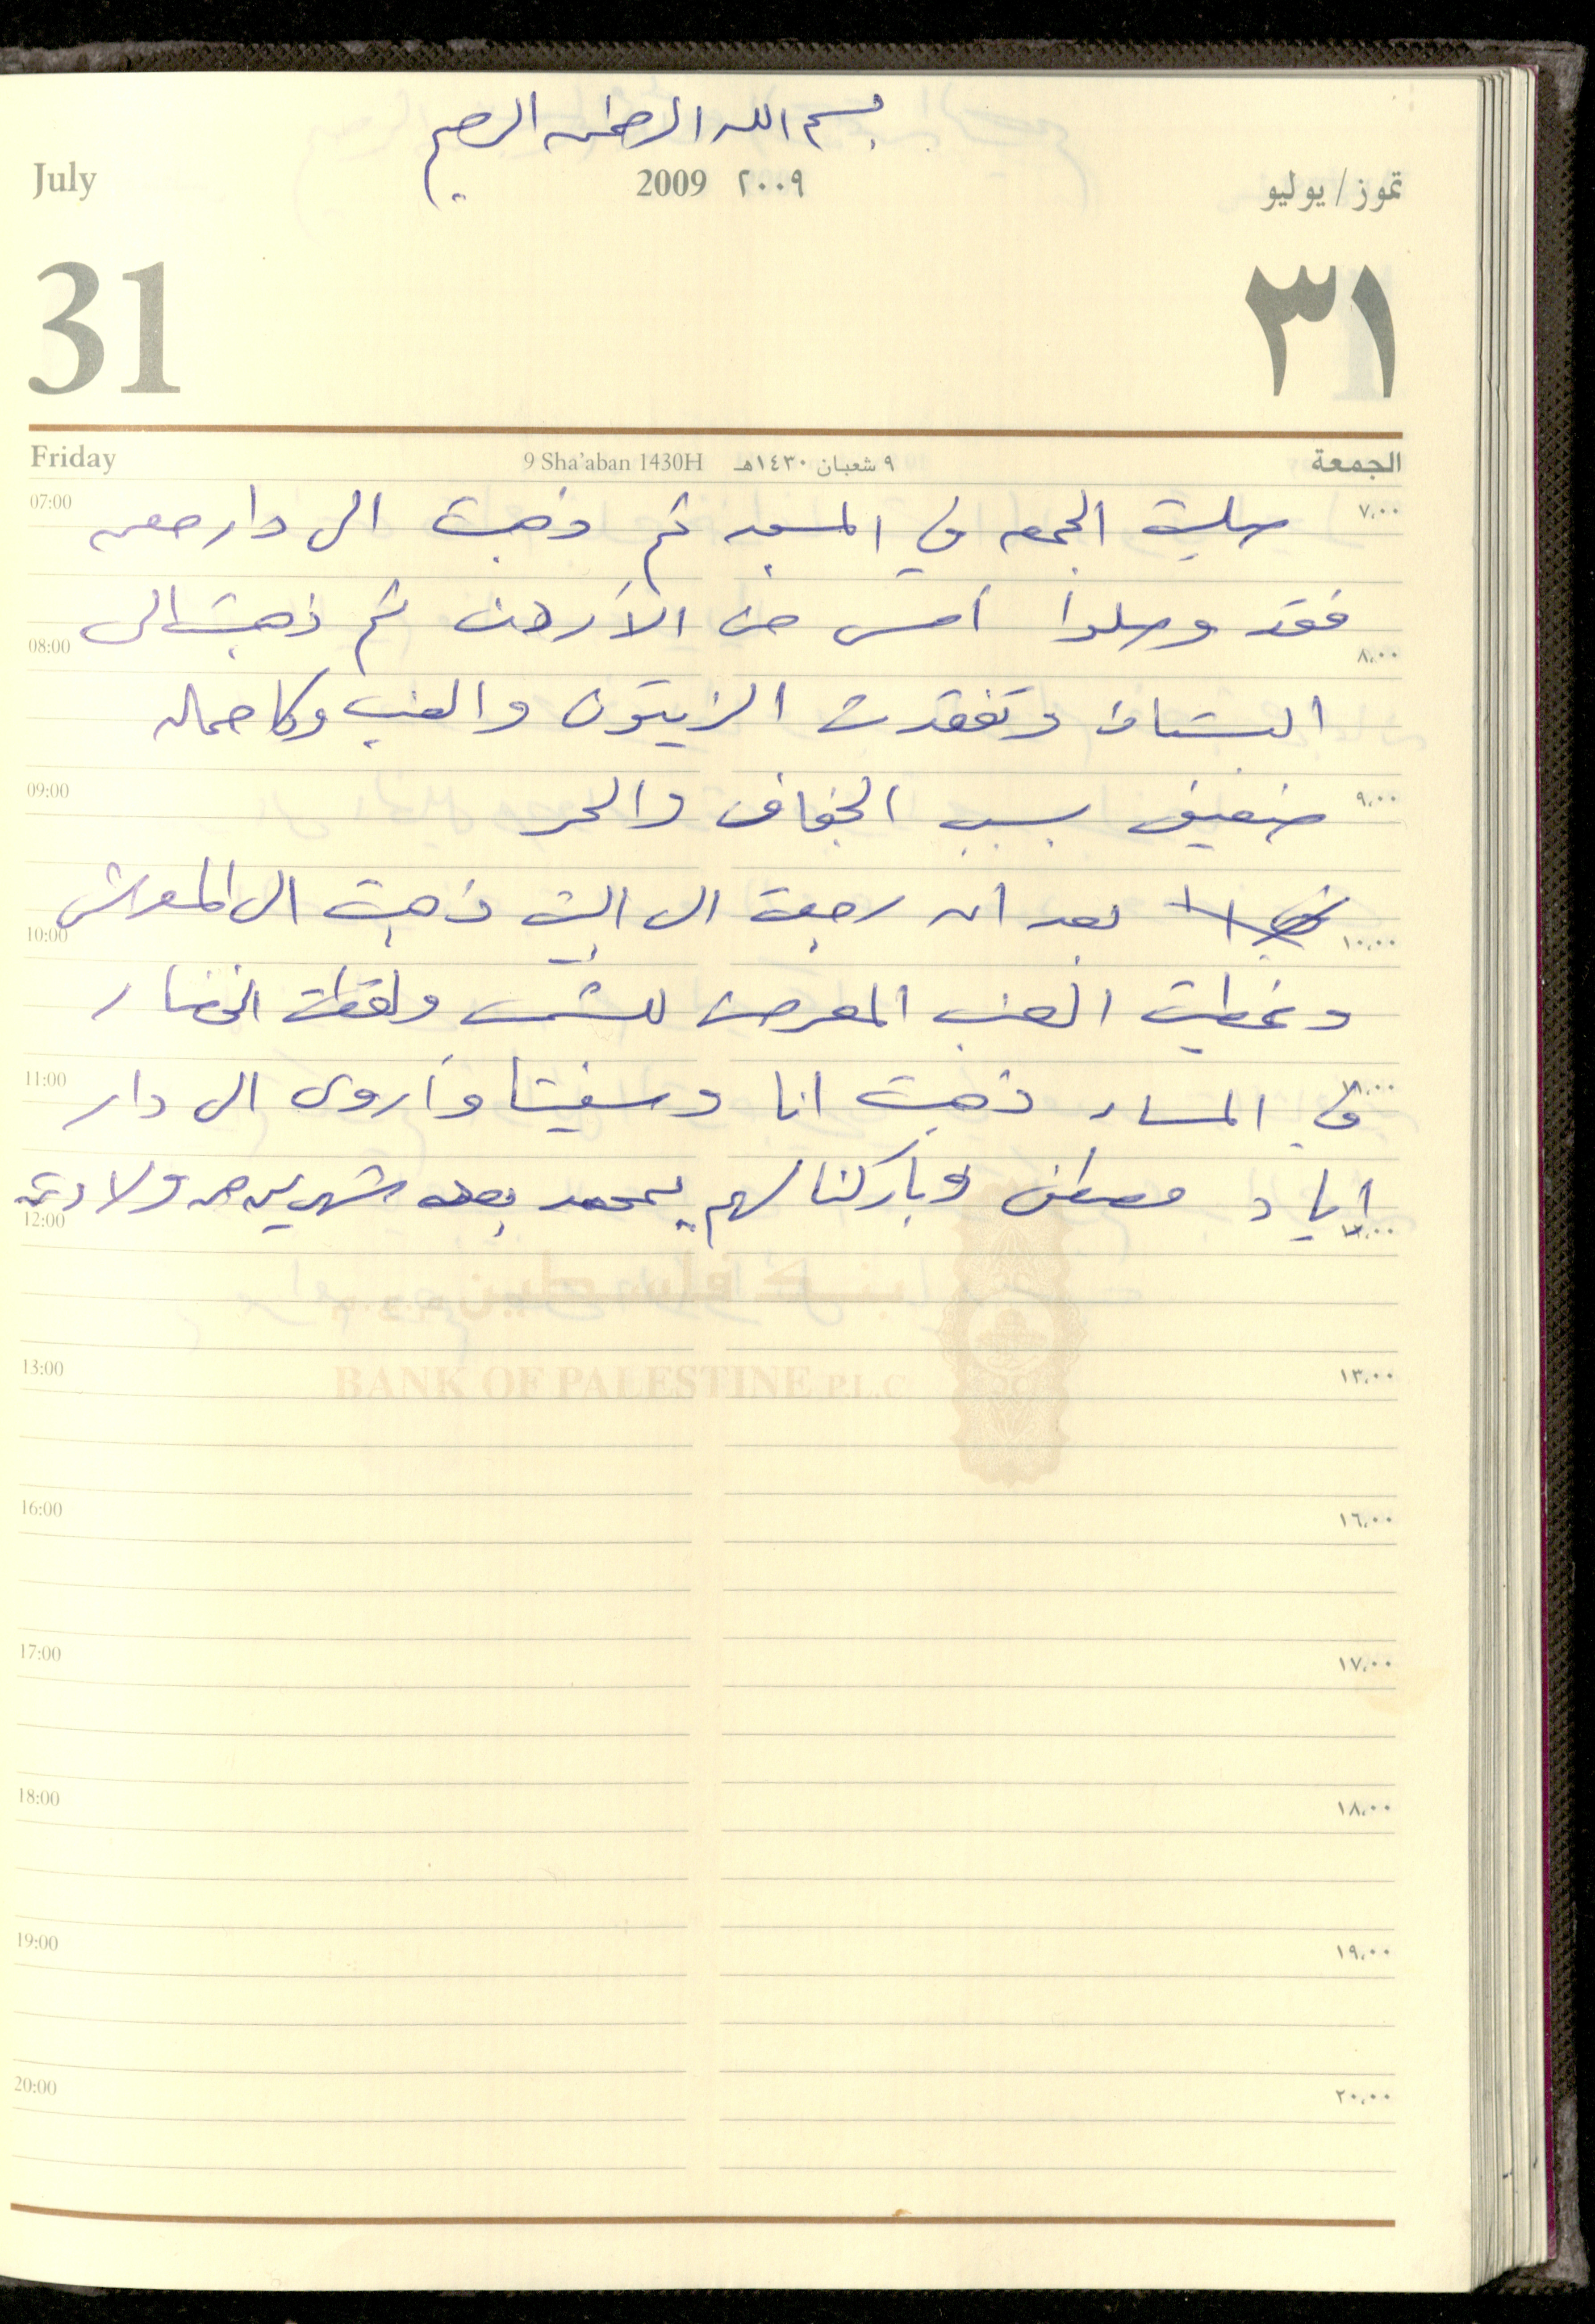 بسم الله الرحمن الرحيم
July 2009 ٢٠٠٩ تموز/يوليو
31 ٣١
Friday 9 Sha'aban 1430H ٩ شعبان ١٤٣٠هـ الجمعة
07:00 صليت الجمعه في المسجد ثم ذهبت الى دار ٧،٠٠
فقد وصلوا أمس من الأردن ثم ذهبت الى
08:00 ٨،٠٠
البستان وتفقدت الزيتون والعنب وكا حماله
09:00 ضعيف بسبب الجفاف والحر ٩،٠٠
بعد ان رجعت الى البيت ذهبت الى المعرش
10:00 ١٠،٠٠
وغطيت العنب المعرض للشمس ولقطت الخضار
11:00 ١١،٠٠
في المساء ذهبت انا وسفيتا وأروى الى دار
اياد مصطفى وباركنا لهم بمحمد بعد شهرين من ولادته
12:00 ١٢،٠٠
BANK OF PALESTINE P.L.C
13:00 ١٣،٠٠
16:00 ١٦،٠٠
17:00 ١٧،٠٠
18:00 ١٨،٠٠
19:00 ١٩،٠٠
20:00 ٢٠،٠٠